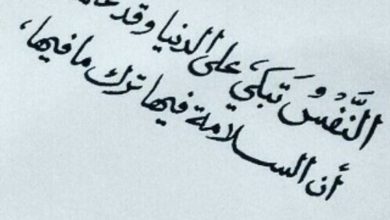 النَّفْسُ تَبكي، على الدنيا وقد
أن السلامة فيها ترك ما فيها،